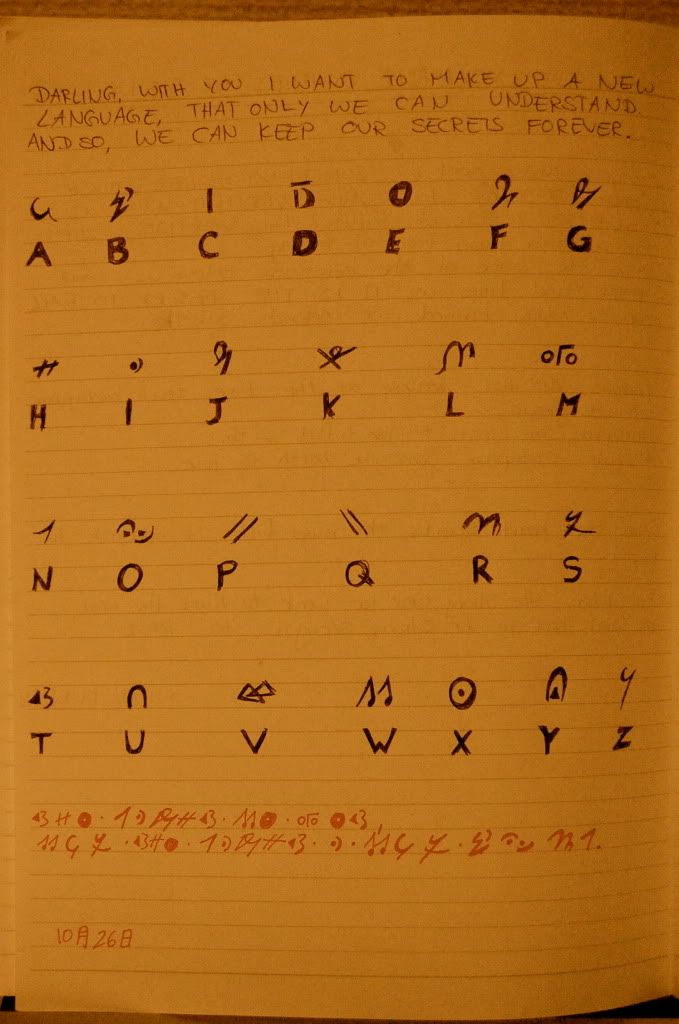 DARLING, WITH YOU I WANT TO MAKE UP A NEW
LANGUAGE, THAT ONLY WE CAN UNDERSTAND.
AND SO, WE CAN KEEP OUR SECRETS FOREVER.
A B C D E F G
H I J K L M
N O P Q R S
T U V W X Y Z
10月26日